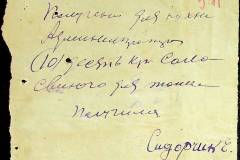 Получено для кухни
Администрации
(10) десять кгр сала
свиного для
Получила
Сидорчик